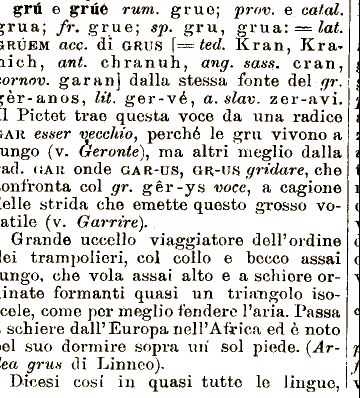 grú e grúe rum. grue; prov. e catal.
grua; fr. grue; sp. gru, grua: = lat.
GRÚEM acc. di GRUS [= ted. Kran, Kra-
nich, ant. chranuh, ang. sass. cran,
cornov. garan] dalla stessa fonte del gr.
gèr-anos, lit. ger-vé, a. slav. zer-avi.
Il Pictet trae questa voce da una radice
GAR esser vecchio, perché le gru vivono a
lungo (v. Geronte), ma altri meglio dalla
rad. GAR onde GAR-US, GR-US gridare, che
confronta col gr. gêr-ys voce, a cagione
delle strida che emette questo grosso vo-
latile (v. Garrire).
Grande uccello viaggiatore dell'ordine
dei trampolieri, col collo e becco assai
lungo, che vola assai alto e a schiere or-
dinate formanti quasi un triangolo iso-
cele, come per meglio fendere l'aria. Passa
a schiere dall'Europa nell'Africa ed è noto
pel suo dormire sopra un sol piede. (Ar-
dea grus di Linneo).
Dicesi cosí in quasi tutte le lingue,